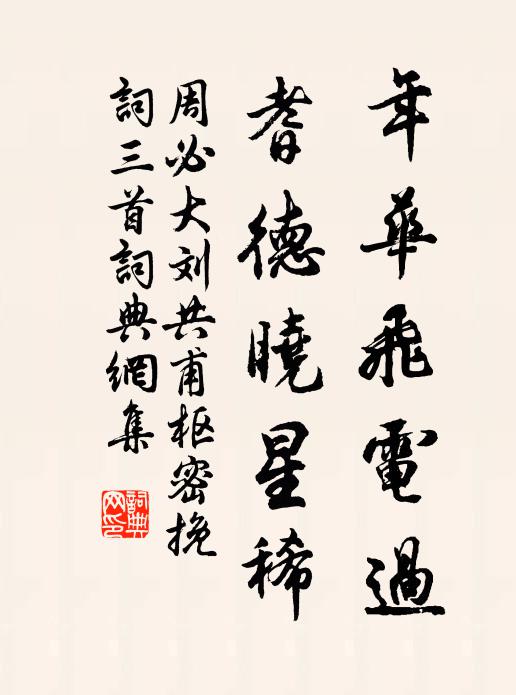 年華飛電過
耆德曉星稀
周必大刘共甫枢密挽
詞三首詞典網集
詞典
网印